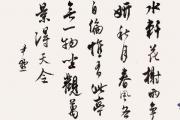 水軒花榭两争
妍秋月春風各
自偏惟有此亭
無一物坐觀萬
景得天全